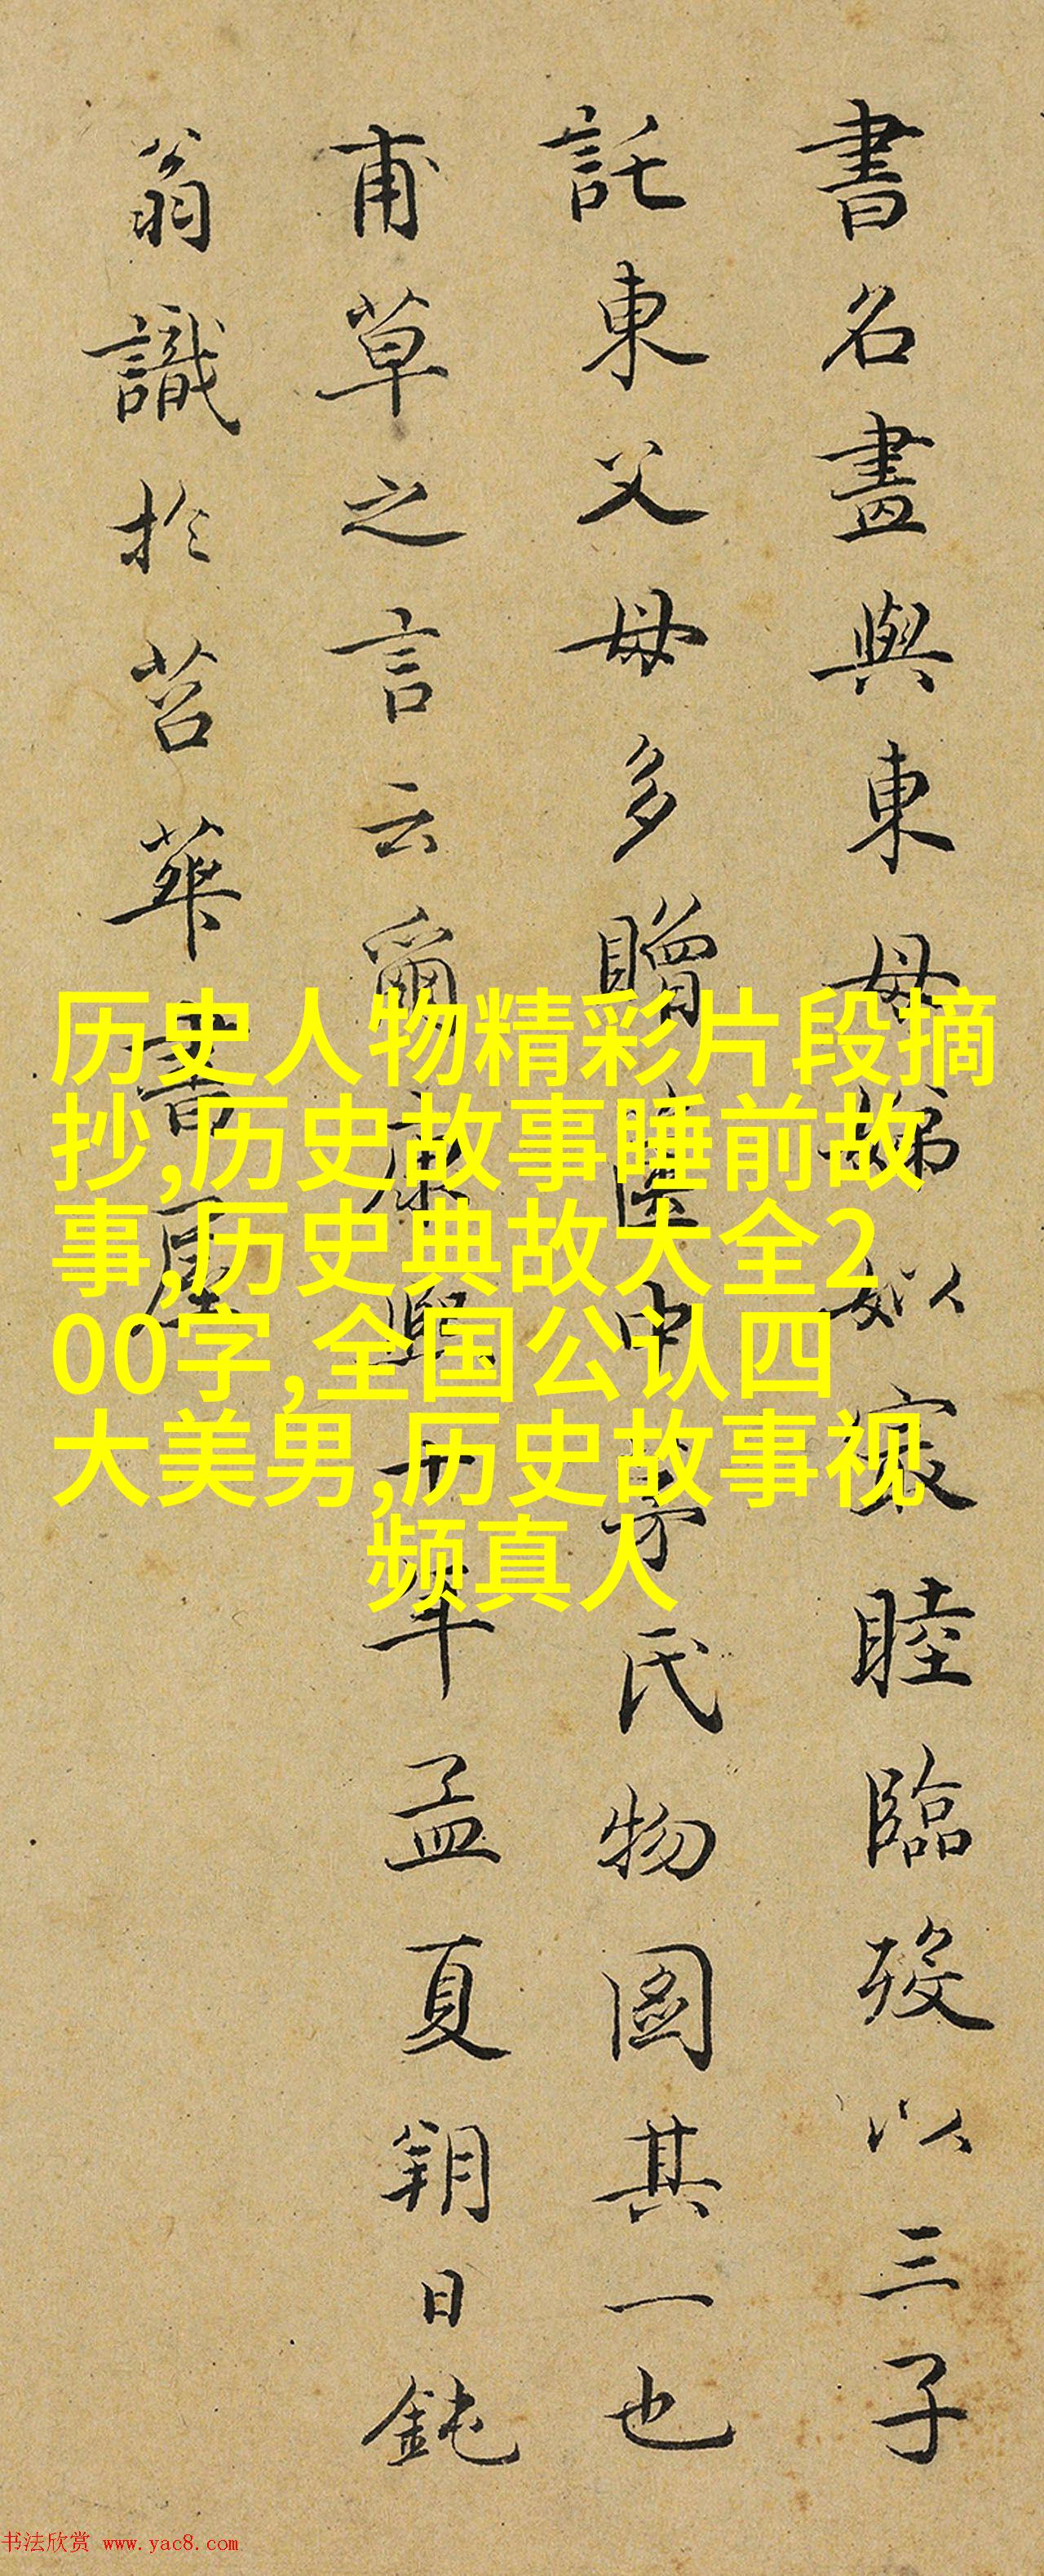 書名畫與東母娣姒㝡睦臨歿以三子
託東父母多贈中氏物圖其一也
甫草之言云爾康熙十年孟夏朔日鈍
翁識於苕華書屋
历史人物精彩片段摘
抄,历史故事睡前故
事,历史典故大全2
00字,全国公认四
大美男,历史故事视
频真人
书法欣赏 www.yac8.com